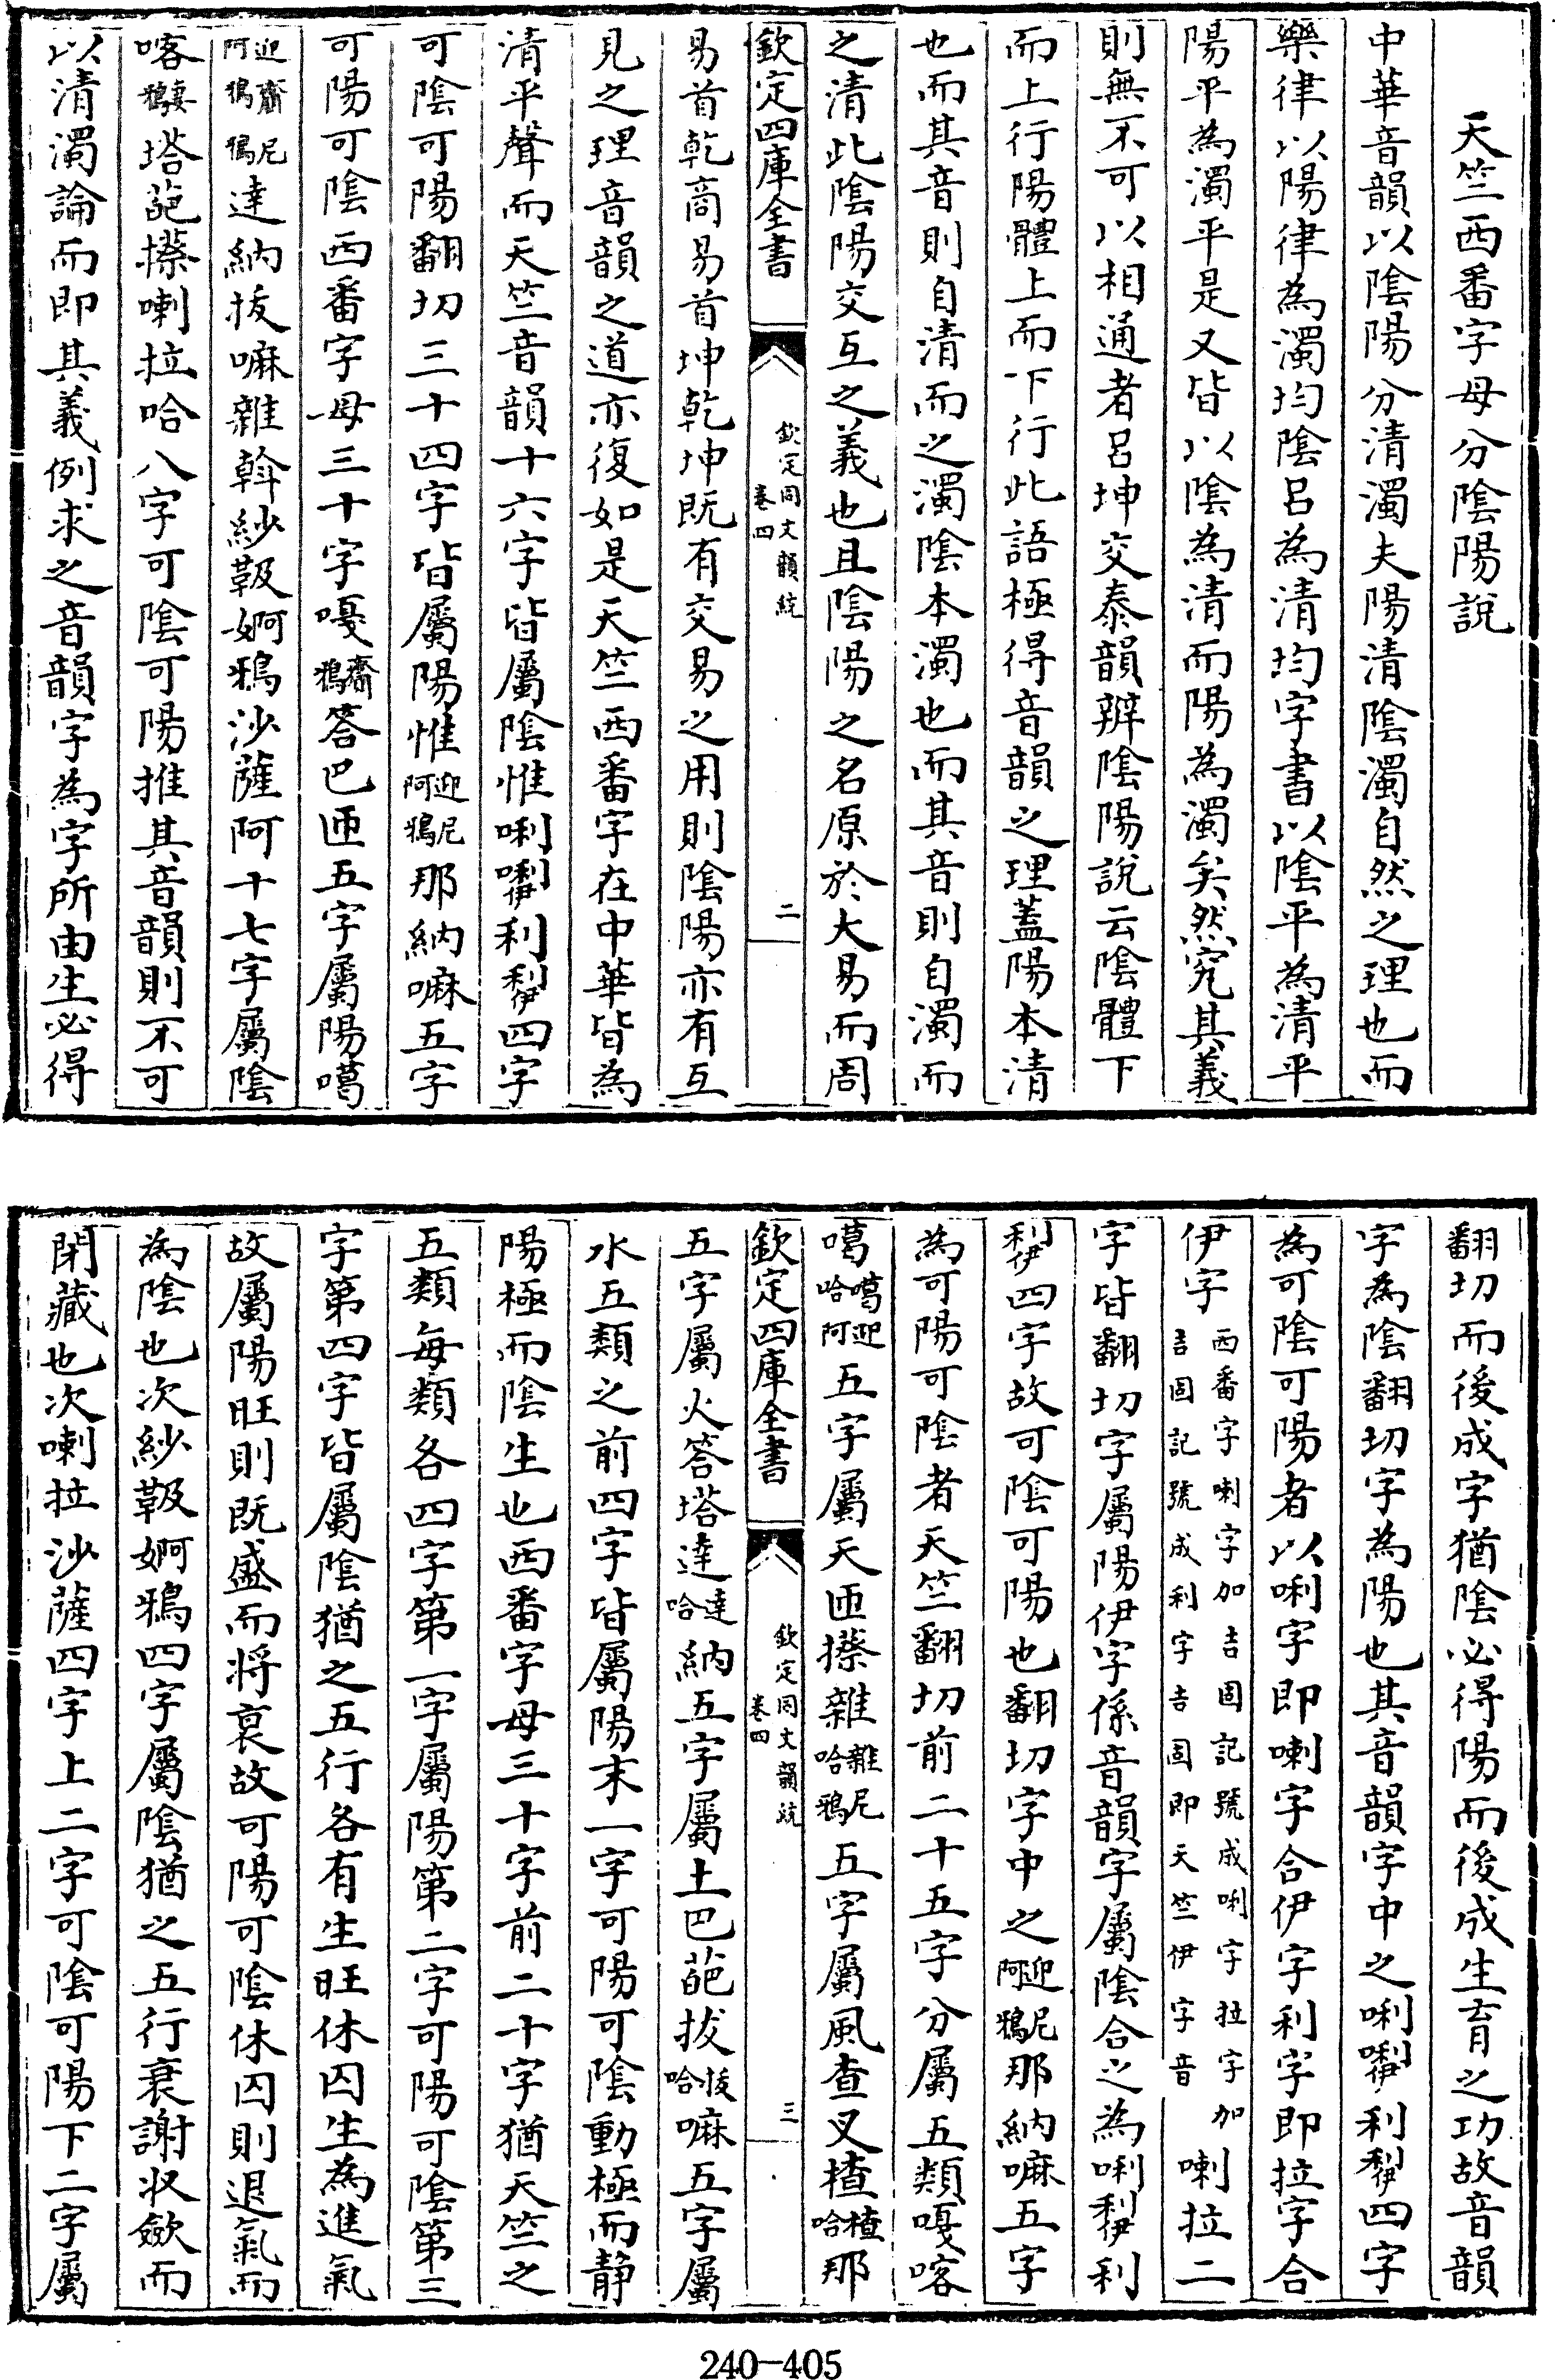 天竺西番字母分陰陽說
中華音韻以陰陽分清濁夫陽清陰濁自然之理也而
樂律以陽律為濁均陰呂為清均字書以陰平為清平
陽平為濁平是又皆以陰為清而陽為濁矣然究其義
則無不可以相通者呂坤交泰韻辨陰陽說云陰體下
而上行陽體上而下行此語極得音韻之理蓋陽本清
也而其音則自清而之濁陰本濁也而其音則自濁而
之清此陰陽交互之義也且陰陽之名原於大易而周
欽定四庫全書
欽定同文韻統
卷四
二
易首乾商易首坤乾坤既有交易之用則陰陽亦有互
見之理音韻之道亦復如是天竺西番字在中華皆為
清平聲而天竺音韻十六字皆屬陰惟唎唎伊利利伊四字
可陰可陽翻切三十四字皆屬陽惟迎阿尼鴉那納嘛五字
可陽可陰西番字母三十字嘎齋鴉答巴匝五字屬陽噶
迎阿齋鴉尼鴉達納拔嘛雜斡紗靸婀鴉沙薩阿十七字屬陰
喀妻鴉塔葩攃喇拉哈八字可陰可陽推其音韻則不可
以清濁論而即其義例求之音韻字為字所由生必得
翻切而後成字猶陰必得陽而後成生育之功故音韻
字為陰翻切字為陽也其音韻字中之唎唎伊利利伊四字
為可陰可陽者以唎字即喇字合伊字利字即拉字合
伊字西番字喇字加吉固記號成唎字拉字加吉固記號成利字吉固即天竺伊字音喇拉二
字皆翻切字屬陽伊字係音韻字屬陰合之為唎唎伊利
利伊四字故可陰可陽也翻切字中之迎阿尼鴉那納嘛五字
為可陽可陰者天竺翻切前二十五字分屬五類嘎喀
噶噶哈迎阿五字屬天匝攃雜雜哈尼鴉五字屬風查叉楂楂哈那
欽定四庫全書
欽定同文韻統
卷四
三
五字屬火答塔達達哈納五字屬土巴葩拔拔哈嘛五字屬
水五類之前四字皆屬陽末一字可陽可陰動極而靜
陽極而陰生也西番字母三十字前二十字猶天竺之
五類每類各四字第一字屬陽第二字可陽可陰第三
字第四字皆屬陰猶之五行各有生旺休囚生為進氣
故屬陽旺則既盛而將衰故可陽可陰休囚則退氣而
為陰也次紗靸婀鴉四字屬陰猶之五行衰謝收斂而
閉藏也次喇拉沙薩四字上二字可陰可陽下二字屬
240-405